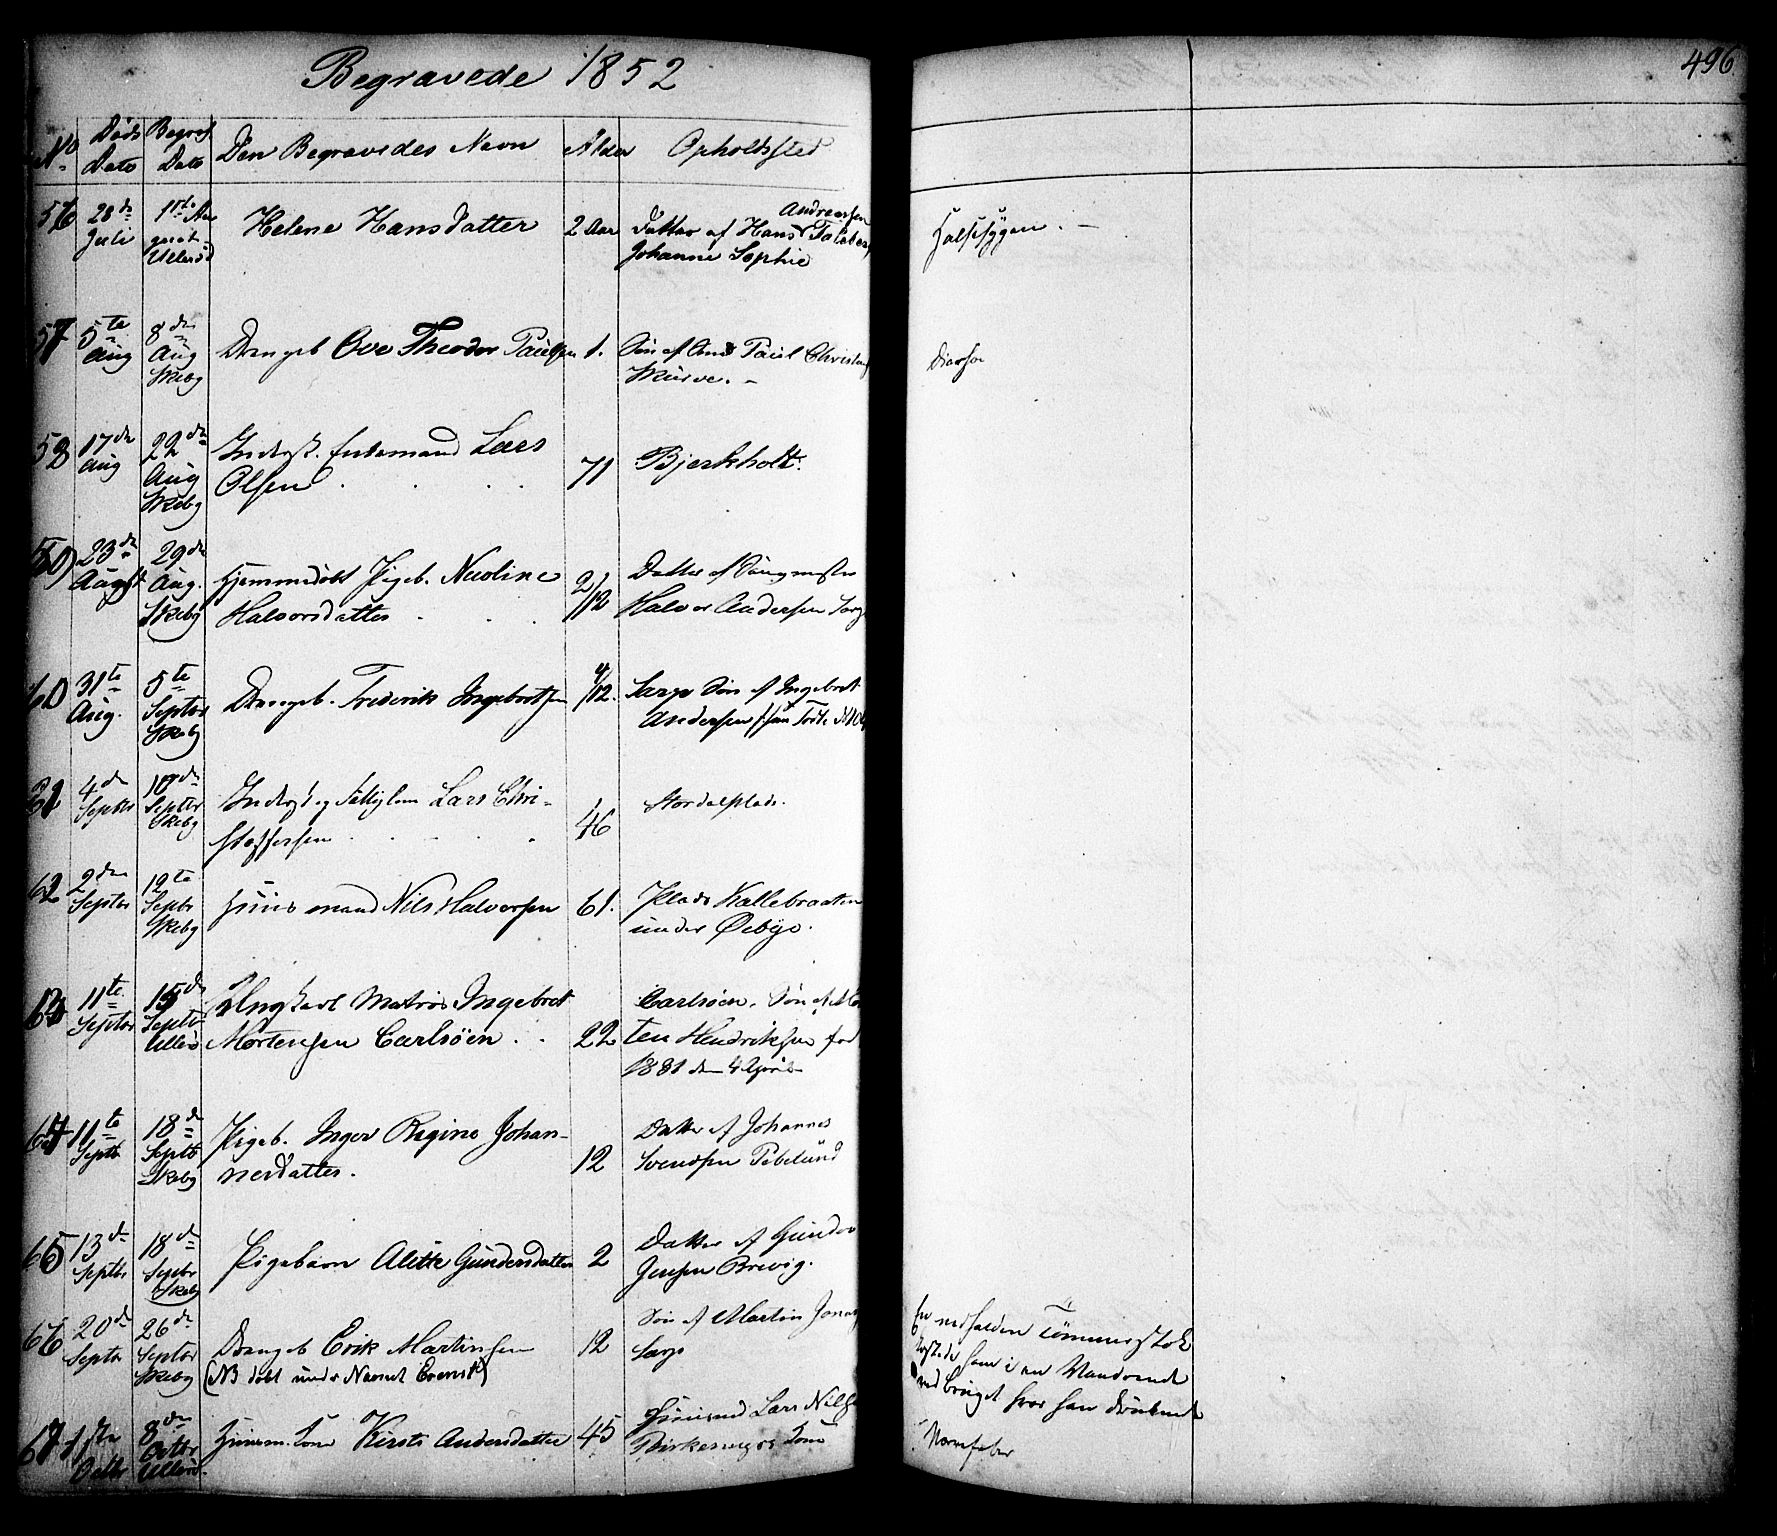 Begravede 1852
496.
No. Døds Dato Begrav Dato Den Begravedes Navn Alder Opholdssted
56 28de Juli 1ste August Ullerø Helene Hansdatter 2 Aar Datter af Hans Andreassen
Johanne Sophie
Halssygen. -
57 5te Aug 8de Aug Skeby Drengeb Ove Theodor Paulsen 1. Søn af Paul Christens
Skurve. -
Diarrhe
58 17de Aug 22de Aug Skeby Inderst. Enkemand Lars
Olsen 71 Bjerkholt.
59) 23de August 29de Aug. Skeby Hjemmedøbt Pigeb. Nicoline 2/12 Datter af
Halvorsdatter Halvor Andersen Sarp
60 31te Aug. 5te Septbr Skeby Drengeb. Frederik Ingebretsen 4/12. Sarps Søn af Ingebret
Andersen
61 4de Septbr 10de Septbr Skeby Inderst og Lars Chri-
stoffersen 46 Stordalplads.
62 2den Septbr 12te Septbr Skeby Huusmand Nils Halvorsen 61. Plads Kallebraaten
under Øebye.
63 11te Septbr 15de Septbr Ullerø Ungkarl Matros Ingebret
Mortensen Carlsøen 22 Carlsøen. Søn af Mor
ten Hendriksen fød
1831 den 4 April
64 11te Septbr 18de Septbr Skeby Pigeb. Inger Regine Johan-
nesdatter. 12 Datter af Johannes
Svendsen Pebelund
65 13de Septbr 18de Septbr Skeby Pigebarn Alette Gundersdatter 2 Datter af Gunder
Jensen Brevig.
66 20de Septbr 26de Septbr Skeby Drengeb Erik Martinsen 12 Søn af Martin Jonas
(NB døbt under Navnet Evensk) Sarps
En nedfalden Tømmerstok
stødte ham i en Vandrende
ved Bruget hvor han druknede
67 1ste Octbr 8de Octbr Ullerø Huusm. Kone Kirsti Andersdatter 45 Huusmd Lars Nils
Birkesnes Kone
Nervefeber